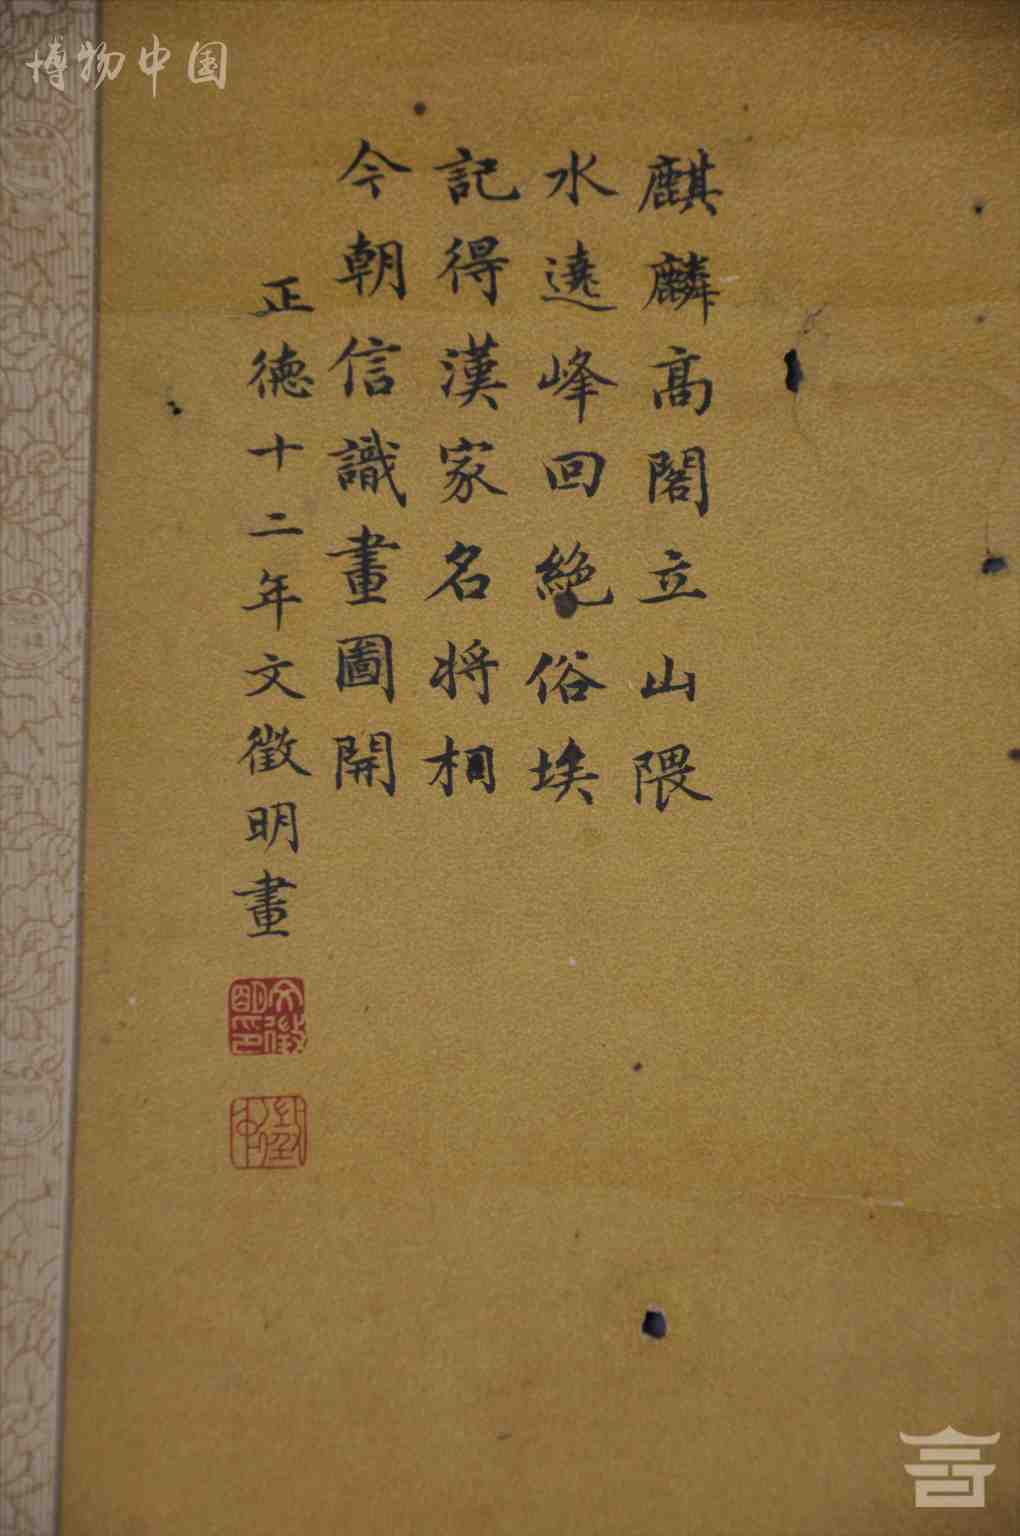 博物中国
麒麟高閣立山隈
水遶峰回絕俗埃
記得漢家名將相
今朝信識畫圖開
正德十二年文徵明畫
文徵明印